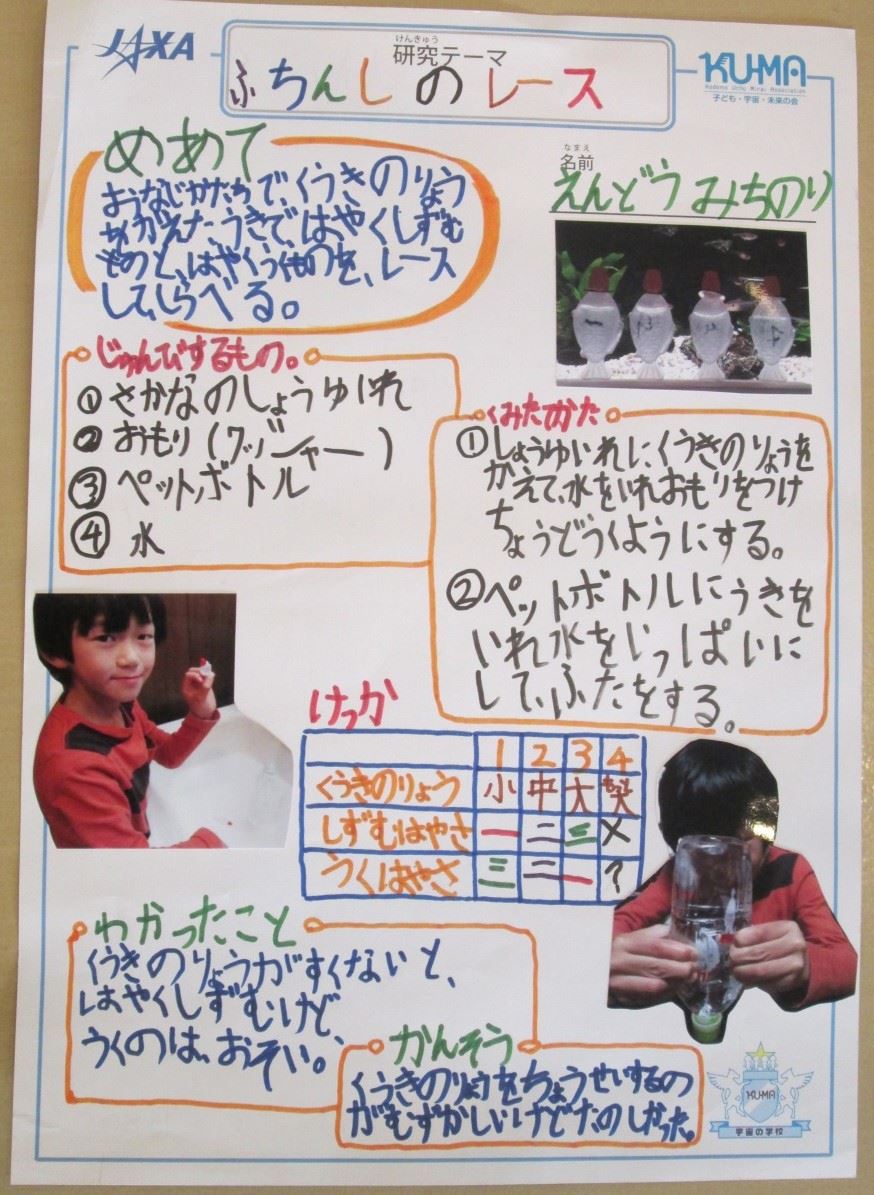 JAXA
けんきゅう
研究テーマ
ふちんしのレース
KU-MA
Kodomo Uchu Mirai Association
子ども・宇宙・未来の会
めあて
おなじかたちで、くうきのりょう
をかえた、うきで、はやくしずむ
ものと、はやくうくものを、レース
して、しらべる。
なまえ
名前
えんどうみちのり
じゅんびするもの。
①さかなのしょうゆいれ
②おもり(ワッシャー)
③ペットボトル
④水
くみたてかた
①しょうゆいれに、くうきのりょうを
かえて、水をいれおもりをつけ
ちょうどうくようにする。
②ペットボトルにうきを
いれ水をいっぱいに
して、ふたをする。
けっか
1 2 3 4
くうきのりょう 小 中 大
しずむはやさ 一 二 三 ×
うくはやさ 三 二 一 ?
わかったこと
くうきのりょうがすくないと、
はやくしずむけど
うくのは、おそい。
かんそう
くうきのりょうをちょうせいするの
がむずかしいけどたのしかった。
KU-MA
宇宙の学校